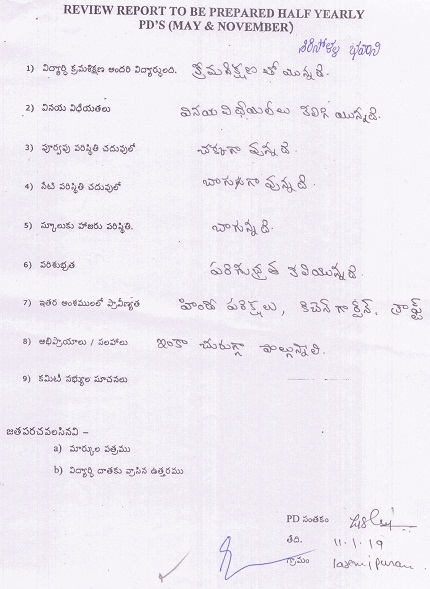 REVIEW REPORT TO BE PREPARED HALF YEARLY
PD'S (MAY & NOVEMBER)
భవాని
1) విద్యార్థి క్రమశిక్షణ అందరి విద్యార్థులది. క్రమశిక్షణ తో యున్నది.
2) వినయ విధేయతలు వినయవిధేయతలు కలిగి యున్నది.
3) పూర్వపు పరిస్థితి చదువులో చక్కగా వున్నది.
4) నేటి పరిస్థితి చదువులో బాగుగా వున్నది.
5) స్కూలుకు హాజరు పరిస్థితి. బాగున్నది.
6) పరిశుభ్రత పరిశుభ్రత కలియున్నది.
7) ఇతర అంశములలో ప్రావీణ్యత హిందీ పరీక్షలు, కిచెన్ గార్డెన్,
8) అభిప్రాయాలు / సలహాలు ఇంకా చురుగ్గా పాల్గున్నాలి.
9) కమిటీ సభ్యుల సూచనలు
జతపరచవలసినవి –
a) మార్కుల పత్రము
b) విద్యార్థి దాతకు వ్రాసిన ఉత్తరము
PD సంతకం
తేది. 11.1.19
గ్రామం laxmipuram